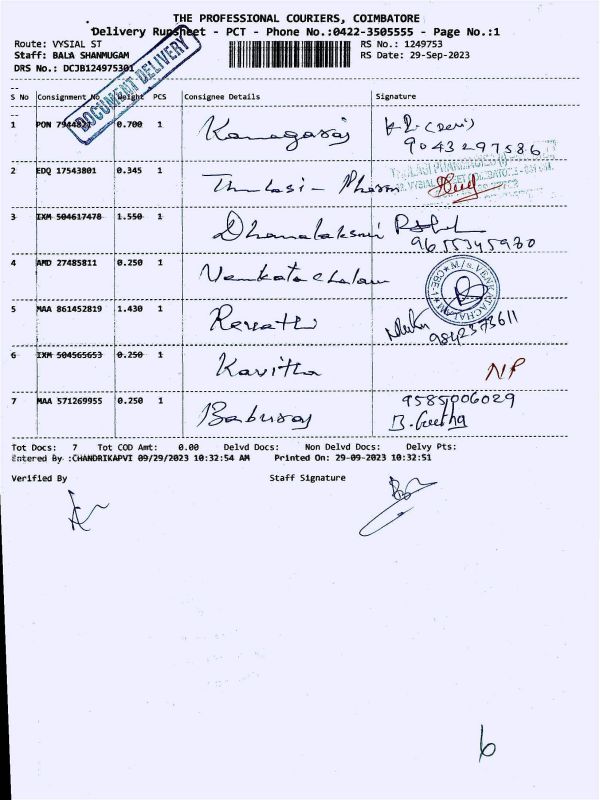 THE PROFESSIONAL COURIERS, COIMBATORE
Delivery Runsheet - PCT - Phone No.:0422-3505555 - Page No.:1
Route: VYSIAL ST RS No.: 1249753
Staff: BALA SHANMUGAM RS Date: 29-Sep-2023
DRS No.: DCJB124975301
DOCUMENT DELIVERY
S No Consignment No Weight PCS Consignee Details Signature
1 PON 0.700 1 Kanagaraj
9043297586
2 EDQ 17543801 0.345 1 Thulasi - Pharm
3 IXM 504617478 1.550 1 Dhanalaksmi
9655345930
4 AMD 27485811 0.250 1 Venkatachalam
M/s. VENKATACHALAM
CBE-1
5 MAA 861452819 1.430 1 Revathi
9842373611
6 IXM 504565653 0.250 1 Kavitha NP
7 MAA 571269955 0.250 1 Baburaj 9585006029
B. Geetha
Tot Docs: 7 Tot COD Amt: 0.00 Delvd Docs: Non Delvd Docs: Delvy Pts:
Entered By :CHANDRIKAPVI 09/29/2023 10:32:54 AM Printed On: 29-09-2023 10:32:51
Verified By Staff Signature
6